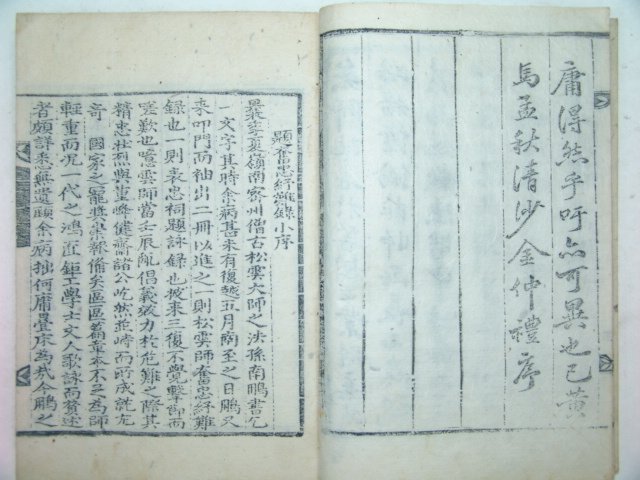 庸得然乎吁亦可異也已黃
馬孟秋清沙金仲禮序
題奮忠紓難錄小序
最季夏嶺南密州僧古松雲大師之法孫南鵬書乞
一文字其時余病甚未有復越五月南至之日鵬又
來叩門而袖出二冊以進之一則松雲師奮忠紓難
錄也一則表忠祠題詠錄也披來三復不覺擊節而
嗟歎也噫雲師當壬辰亂倡義效力於危難之際其
精忠壯烈與重峰健齋諸公屹然並峙而所成就尤
奇國家之寵奬崇報備矣區區篇章本不足為師
輕重而況一代之鴻匠鉅工學士文人歌詠而贊述
者頗詳悉無遺顧余病拙何庸疊床為哉今鵬之